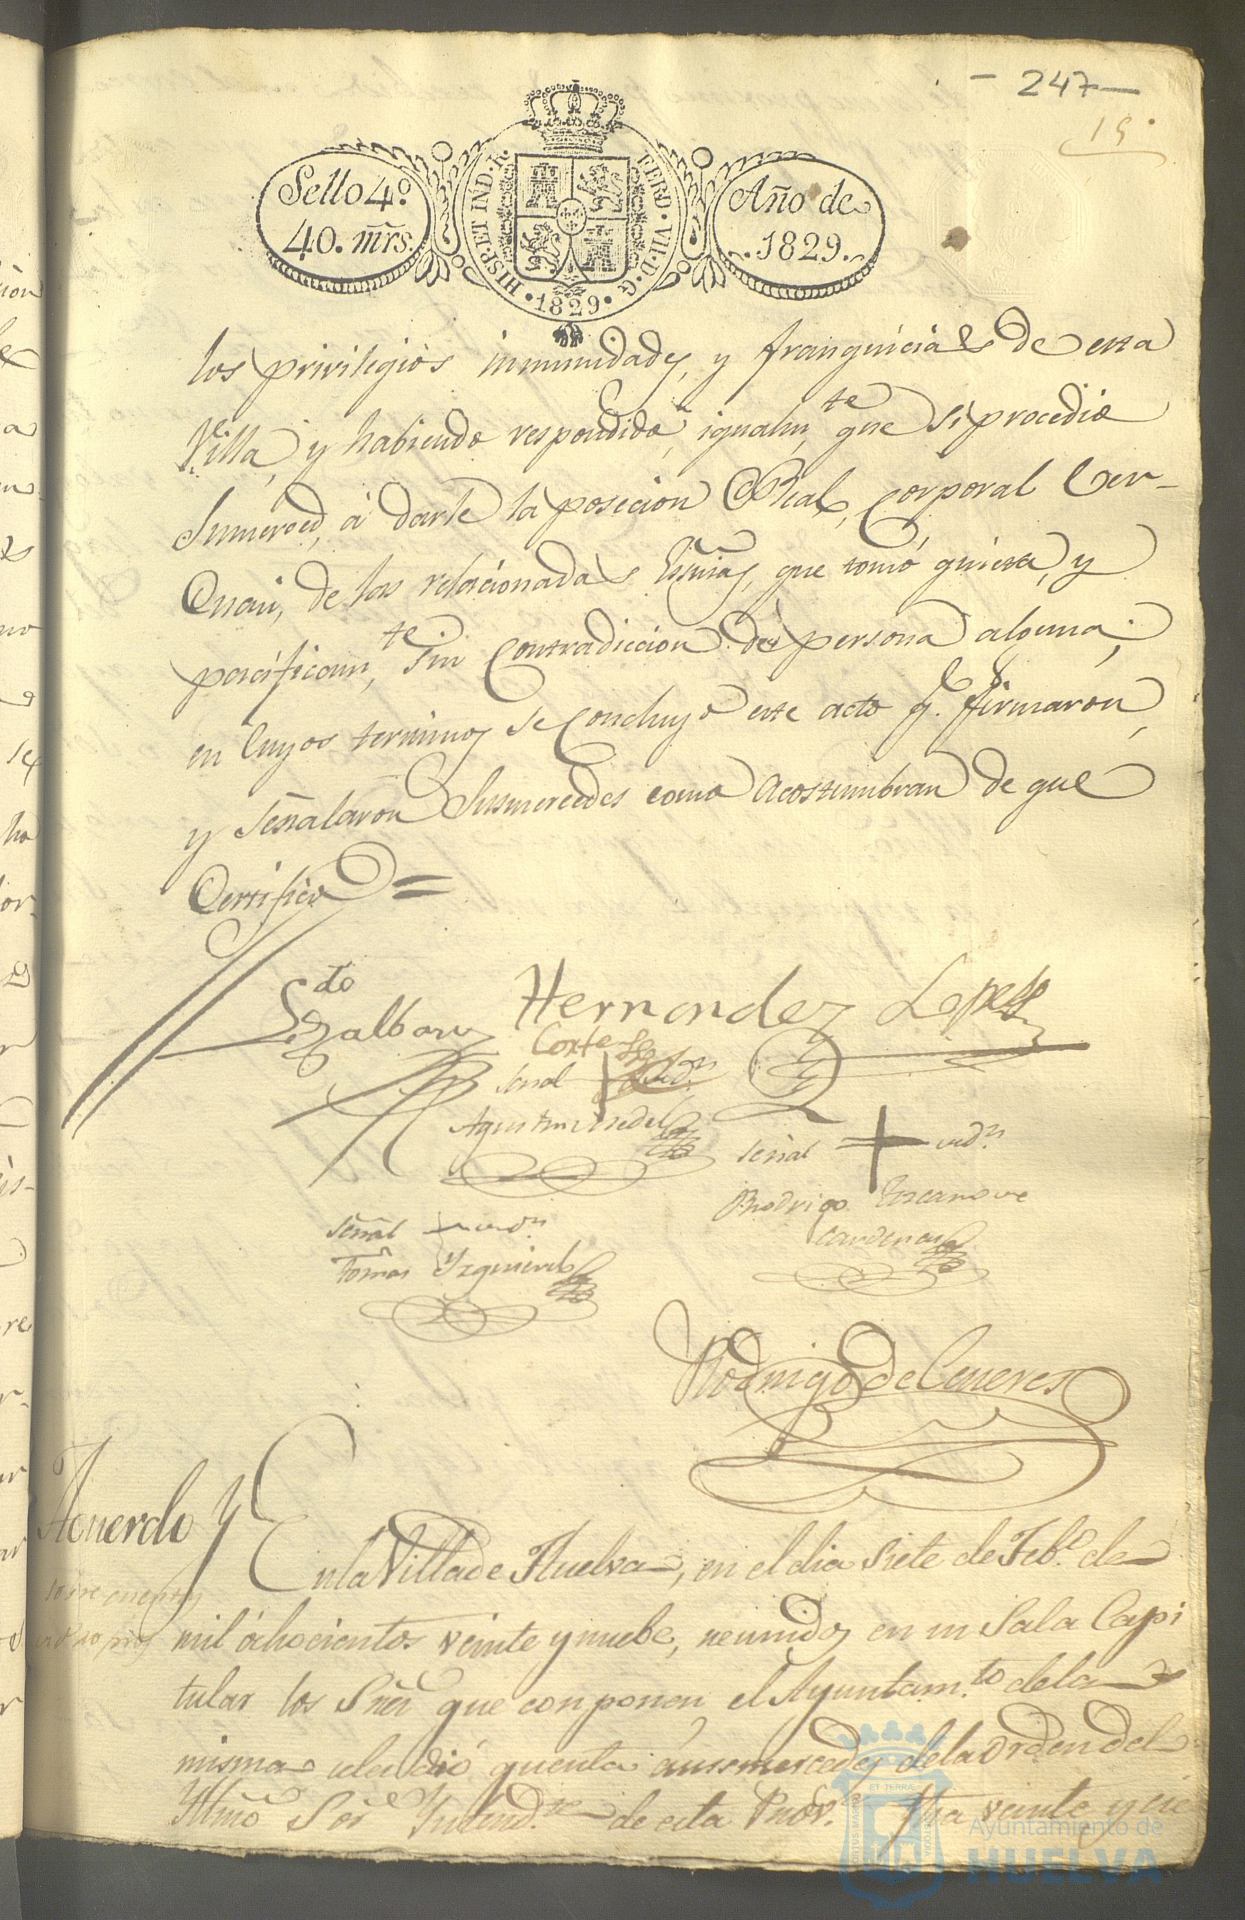 - 247 -
15.
Sello 4.º
40. mrs.
HISP. ET IND. R.
FERD. VII. D. G.
1829
Año de
1829.
los privilegios inmunidades, y franquicias de esta
Villa, y habiendo respondido, igualm.te que si procedio
Sumerced, á darle la posecion Real, Corporal Cer-
Quasi, de las relacionadas que tomó quieta, y
pacificam.te sin Contradiccion de persona alguna;
en Cuyos terminos se Concluyo este acto q.e firmaron,
y señalaron Susmercedes como acostumbran de que
Certifico =
Hernandez Lopez
Cortes
señal + vdn.
Agustin
señal + vdn.
Rodrigo
Cardenas
señal + vdn.
Tomas Yzquierdo
Rodrigo de Ceneres
Acuerdo y
En la Villa de Huelva, en el dia siete de Feb.o de
mil óchocientos veinte y nuebe, reunidos en su Sala Capi
tular los Sres que conponen el Ayuntam.to de la
misma se les dió quenta ásusmercedes de la Orden del
Yllmo Sor Yntend.te de esta Prov.a fha veinte y cie
Ayuntamiento de
HUELVA